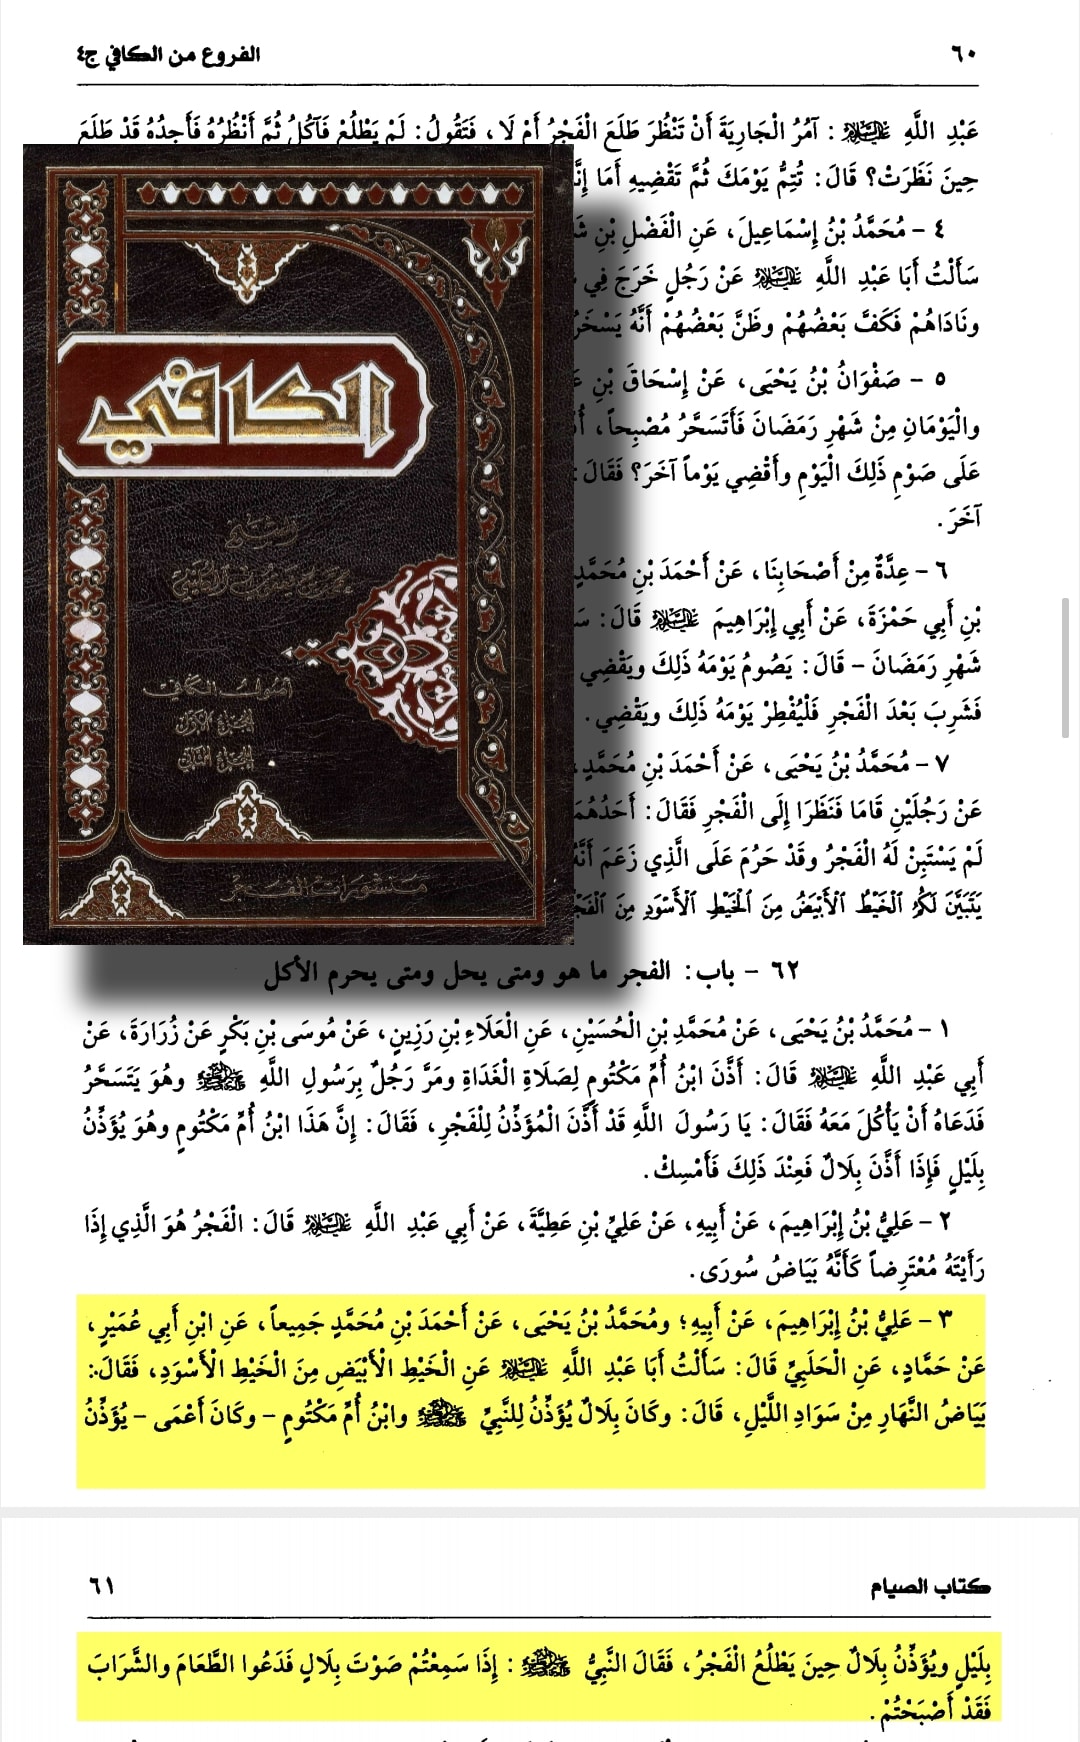 ٦٠
الفروع من الكافي ج٤
عَبْدِ اللَّهِ عليه السلام : آمُرُ الْجَارِيَةَ أَنْ تَنْظُرَ طَلَعَ الْفَجْرُ أَمْ لَا، فَتَقُولُ: لَمْ يَطْلُعْ فَآكُلُ ثُمَّ أَنْظُرُهُ فَأَجِدُهُ قَدْ طَلَعَ
حِينَ نَظَرَتْ؟ قَالَ: تُتِمُّ يَوْمَكَ ثُمَّ تَقْضِيهِ أَمَا
٤ - مُحَمَّدُ بْنُ إِسْمَاعِيلَ، عَنِ الْفَضْلِ بْنِ
سَأَلْتُ أَبَا عَبْدِ اللَّهِ عليه السلام عَنْ رَجُلٍ خَرَجَ فِي
ونَادَاهُمْ فَكَفَّ بَعْضُهُمْ وظَنَّ بَعْضُهُمْ أَنَّهُ يَسْخَرُ
٥ - صَفْوَانُ بْنُ يَحْيَى، عَنْ إِسْحَاقَ بْنِ
والْيَوْمَانِ مِنْ شَهْرِ رَمَضَانَ فَأَتَسَحَّرُ مُصْبِحاً،
عَلَى صَوْمِ ذَلِكَ الْيَوْمِ وأَقْضِي يَوْماً آخَرَ؟ فَقَالَ:
آخَرَ.
٦ - عِدَّةٌ مِنْ أَصْحَابِنَا، عَنْ أَحْمَدَ بْنِ مُحَمَّدٍ
بْنِ أَبِي حَمْزَةَ، عَنْ أَبِي إِبْرَاهِيمَ عليه السلام قَالَ:
شَهْرِ رَمَضَانَ - قَالَ: يَصُومُ يَوْمَهُ ذَلِكَ ويَقْضِي
فَشَرِبَ بَعْدَ الْفَجْرِ فَلْيُفْطِرْ يَوْمَهُ ذَلِكَ ويَقْضِي.
٧ - مُحَمَّدُ بْنُ يَحْيَى، عَنْ أَحْمَدَ بْنِ مُحَمَّدٍ،
عَنْ رَجُلَيْنِ قَامَا فَنَظَرَا إِلَى الْفَجْرِ فَقَالَ: أَحَدُهُمَا
لَمْ يَسْتَبِنْ لَهُ الْفَجْرُ وقَدْ حَرُمَ عَلَى الَّذِي زَعَمَ أَنَّهُ
يَتَبَيَّنَ لَكُمُ الْخَيْطُ الْأَبْيَضُ مِنَ الْخَيْطِ الْأَسْوَدِ مِنَ الْفَجْرِ
الكافي
أصول الكافي
الجزء الأول
الجزء الثاني
منشورات الفجر
٦٢ - باب: الفجر ما هو ومتى يحل ومتى يحرم الأكل
١ - مُحَمَّدُ بْنُ يَحْيَى، عَنْ مُحَمَّدِ بْنِ الْحُسَيْنِ، عَنِ الْعَلَاءِ بْنِ رَزِينٍ، عَنْ مُوسَى بْنِ بَكْرٍ عَنْ زُرَارَةَ، عَنْ
أَبِي عَبْدِ اللَّهِ عليه السلام قَالَ: أَذَّنَ ابْنُ أُمِّ مَكْتُومٍ لِصَلَاةِ الْغَدَاةِ ومَرَّ رَجُلٌ بِرَسُولِ اللَّهِ صلى الله عليه وآله وسلم وهُوَ يَتَسَحَّرُ
فَدَعَاهُ أَنْ يَأْكُلَ مَعَهُ فَقَالَ: يَا رَسُولَ اللَّهِ قَدْ أَذَّنَ الْمُؤَذِّنُ لِلْفَجْرِ، فَقَالَ: إِنَّ هَذَا ابْنُ أُمِّ مَكْتُومٍ وهُوَ يُؤَذِّنُ
بِلَيْلٍ فَإِذَا أَذَّنَ بِلَالٌ فَعِنْدَ ذَلِكَ فَأَمْسِكْ.
٢ - عَلِيُّ بْنُ إِبْرَاهِيمَ، عَنْ أَبِيهِ، عَنْ عَلِيِّ بْنِ عَطِيَّةَ، عَنْ أَبِي عَبْدِ اللَّهِ عليه السلام قَالَ: الْفَجْرُ هُوَ الَّذِي إِذَا
رَأَيْتَهُ مُعْتَرِضاً كَأَنَّهُ بَيَاضُ سُورَى.
٣ - عَلِيُّ بْنُ إِبْرَاهِيمَ، عَنْ أَبِيهِ؛ ومُحَمَّدُ بْنُ يَحْيَى، عَنْ أَحْمَدَ بْنِ مُحَمَّدٍ جَمِيعاً، عَنِ ابْنِ أَبِي عُمَيْرٍ،
عَنْ حَمَّادٍ، عَنِ الْحَلَبِيِّ قَالَ: سَأَلْتُ أَبَا عَبْدِ اللَّهِ عليه السلام عَنِ الْخَيْطِ الْأَبْيَضِ مِنَ الْخَيْطِ الْأَسْوَدِ، فَقَالَ:
بَيَاضُ النَّهَارِ مِنْ سَوَادِ اللَّيْلِ، قَالَ: وكَانَ بِلَالٌ يُؤَذِّنُ لِلنَّبِيِّ صلى الله عليه وآله وسلم وابْنُ أُمِّ مَكْتُومٍ - وكَانَ أَعْمَى - يُؤَذِّنُ
كتاب الصيام
٦١
بِلَيْلٍ ويُؤَذِّنُ بِلَالٌ حِينَ يَطْلُعُ الْفَجْرُ، فَقَالَ النَّبِيُّ صلى الله عليه وآله وسلم : إِذَا سَمِعْتُمْ صَوْتَ بِلَالٍ فَدَعُوا الطَّعَامَ والشَّرَابَ
فَقَدْ أَصْبَحْتُمْ.